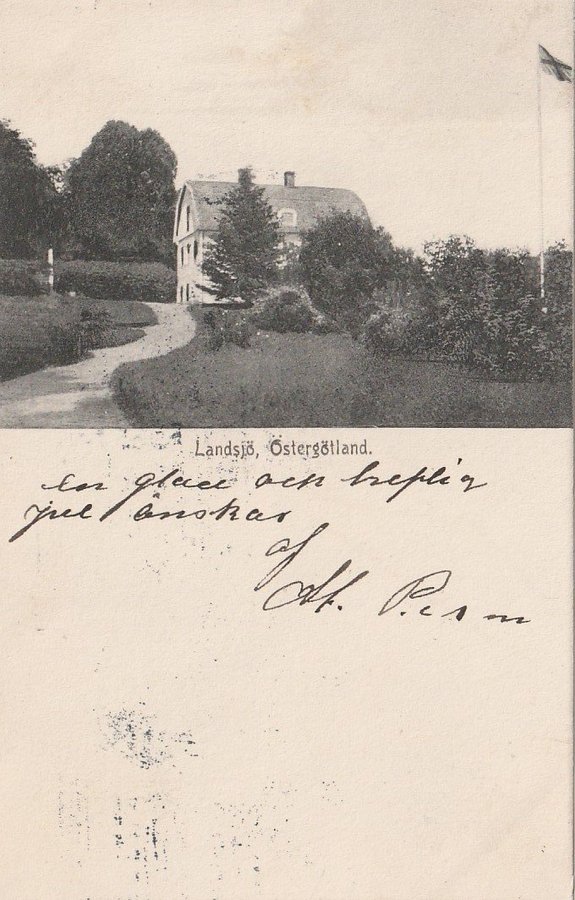 Landsjö, Östergötland.
en glad och treflig
jul önskar
af